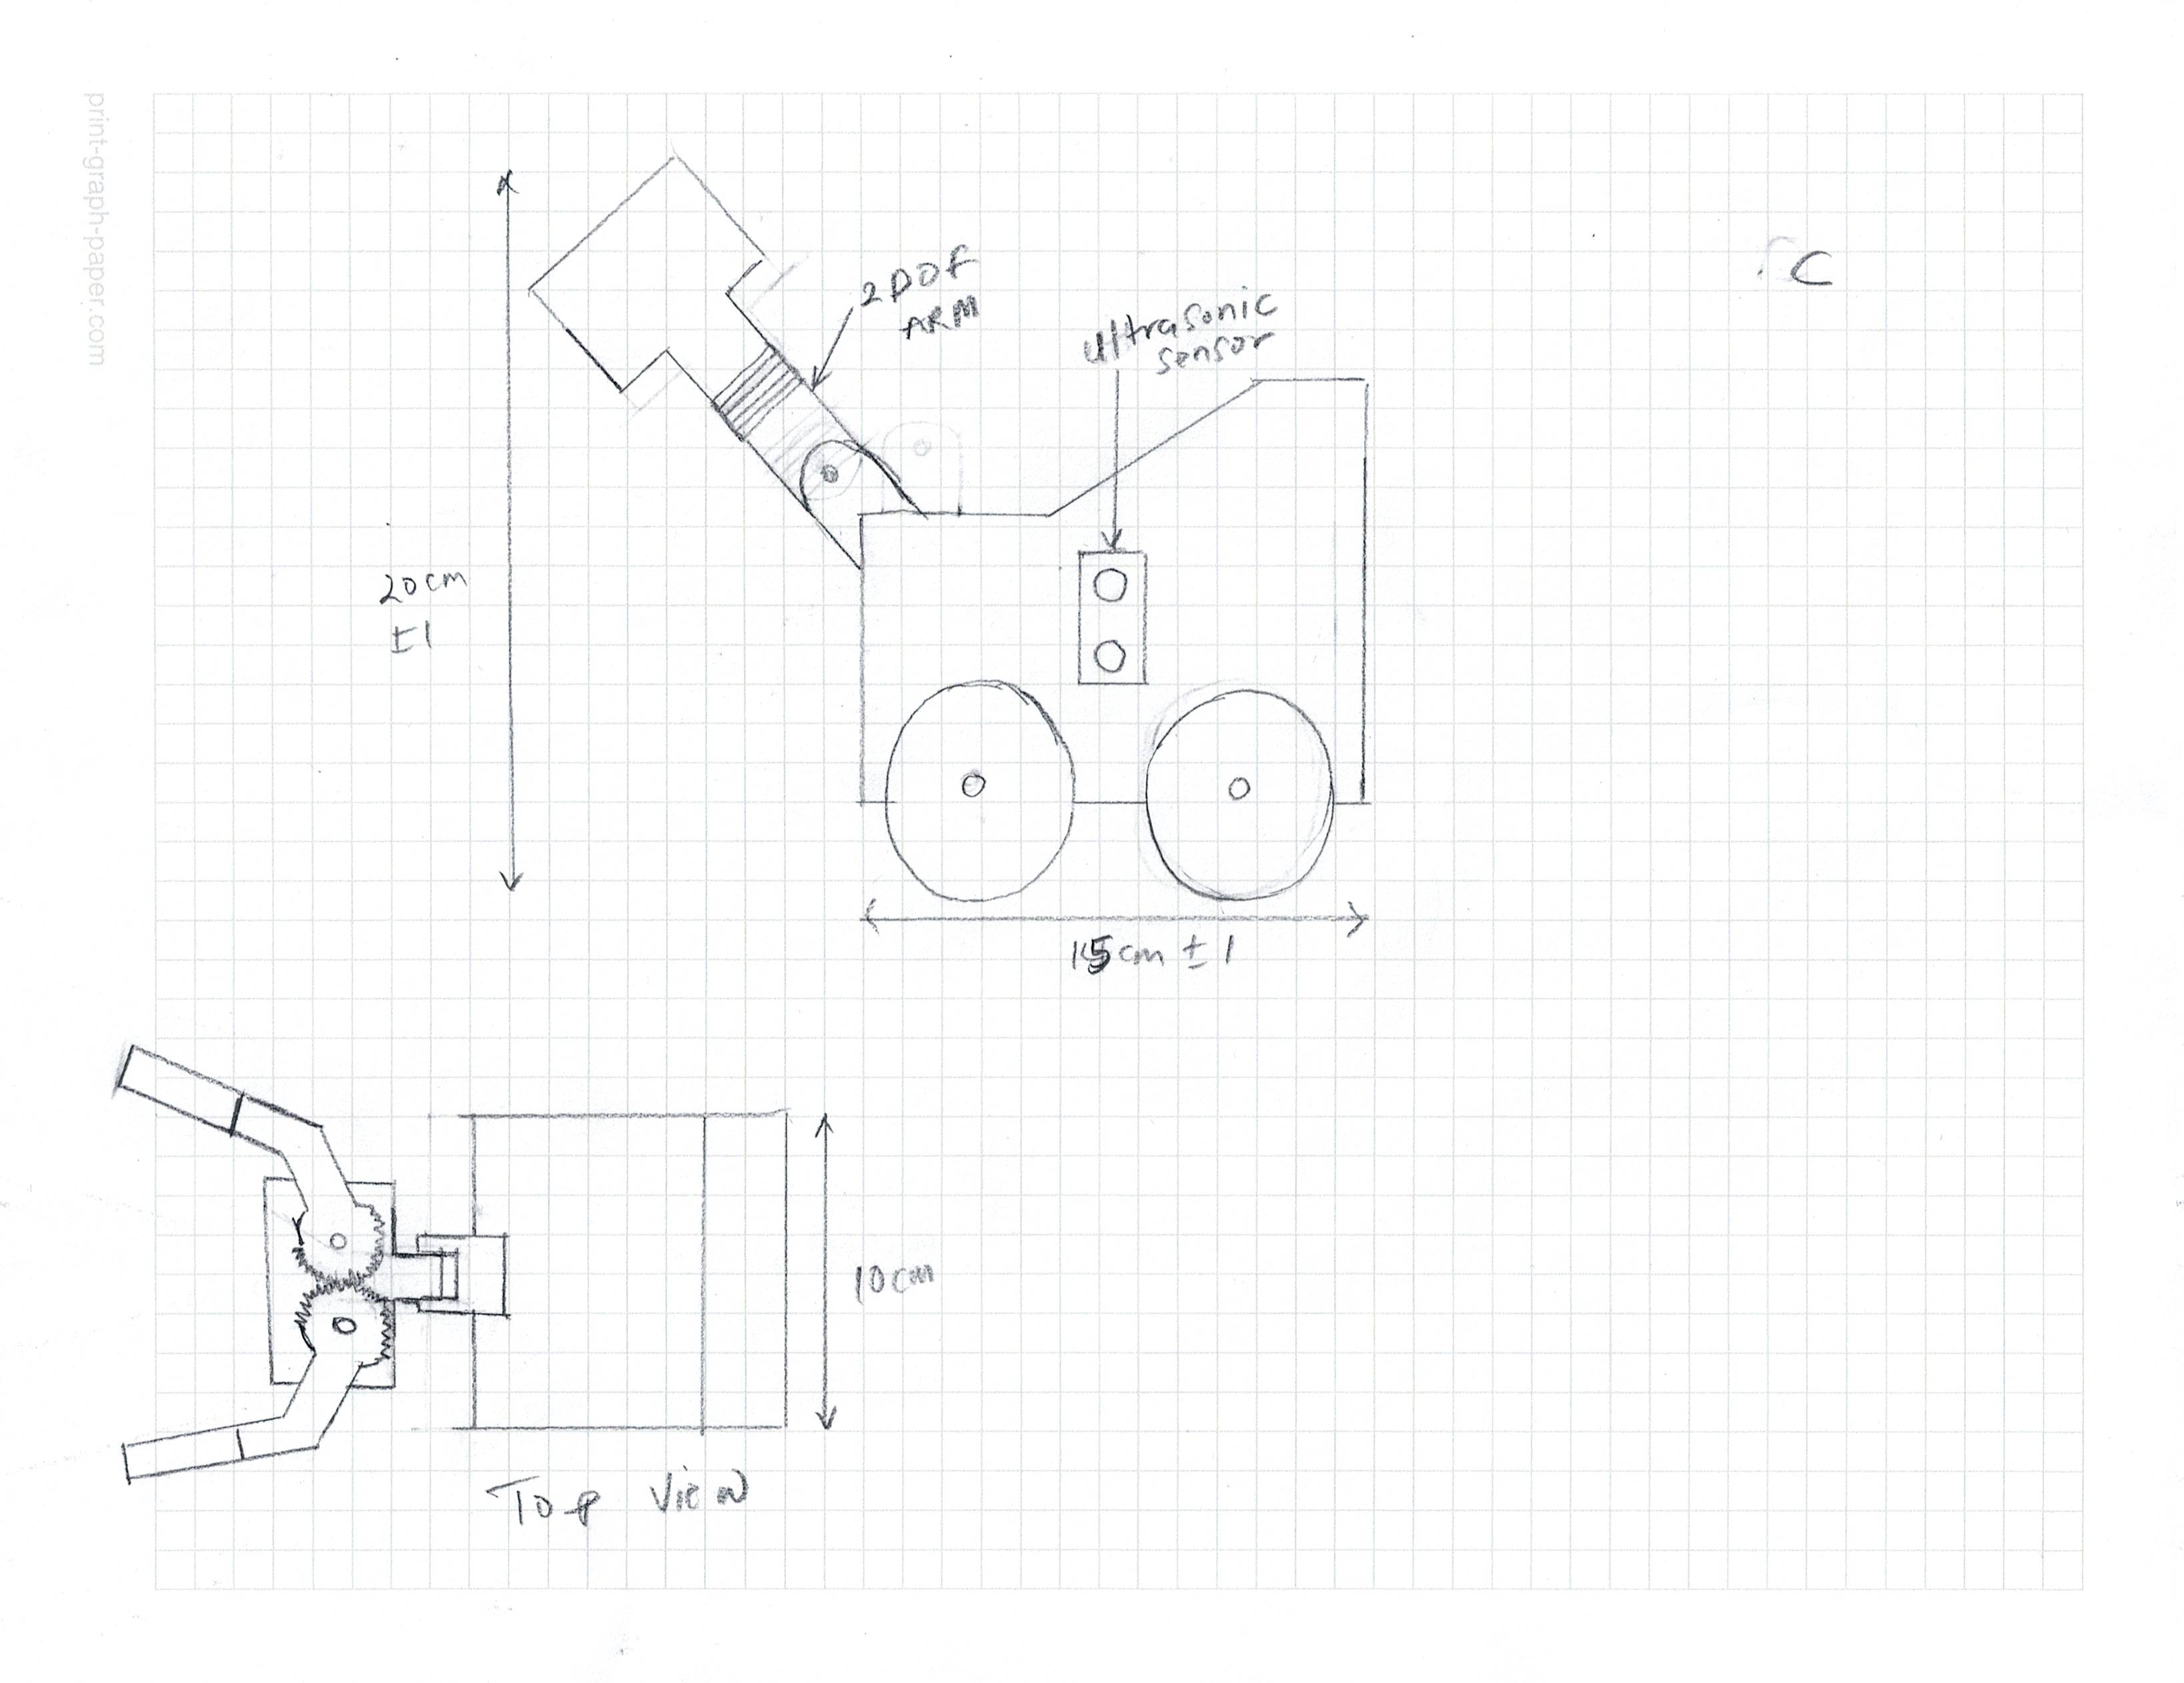 print-graph-paper.com
C
2DOF
ARM
ultrasonic
sensor
20cm
±1
15cm ± 1
10cm
Top View